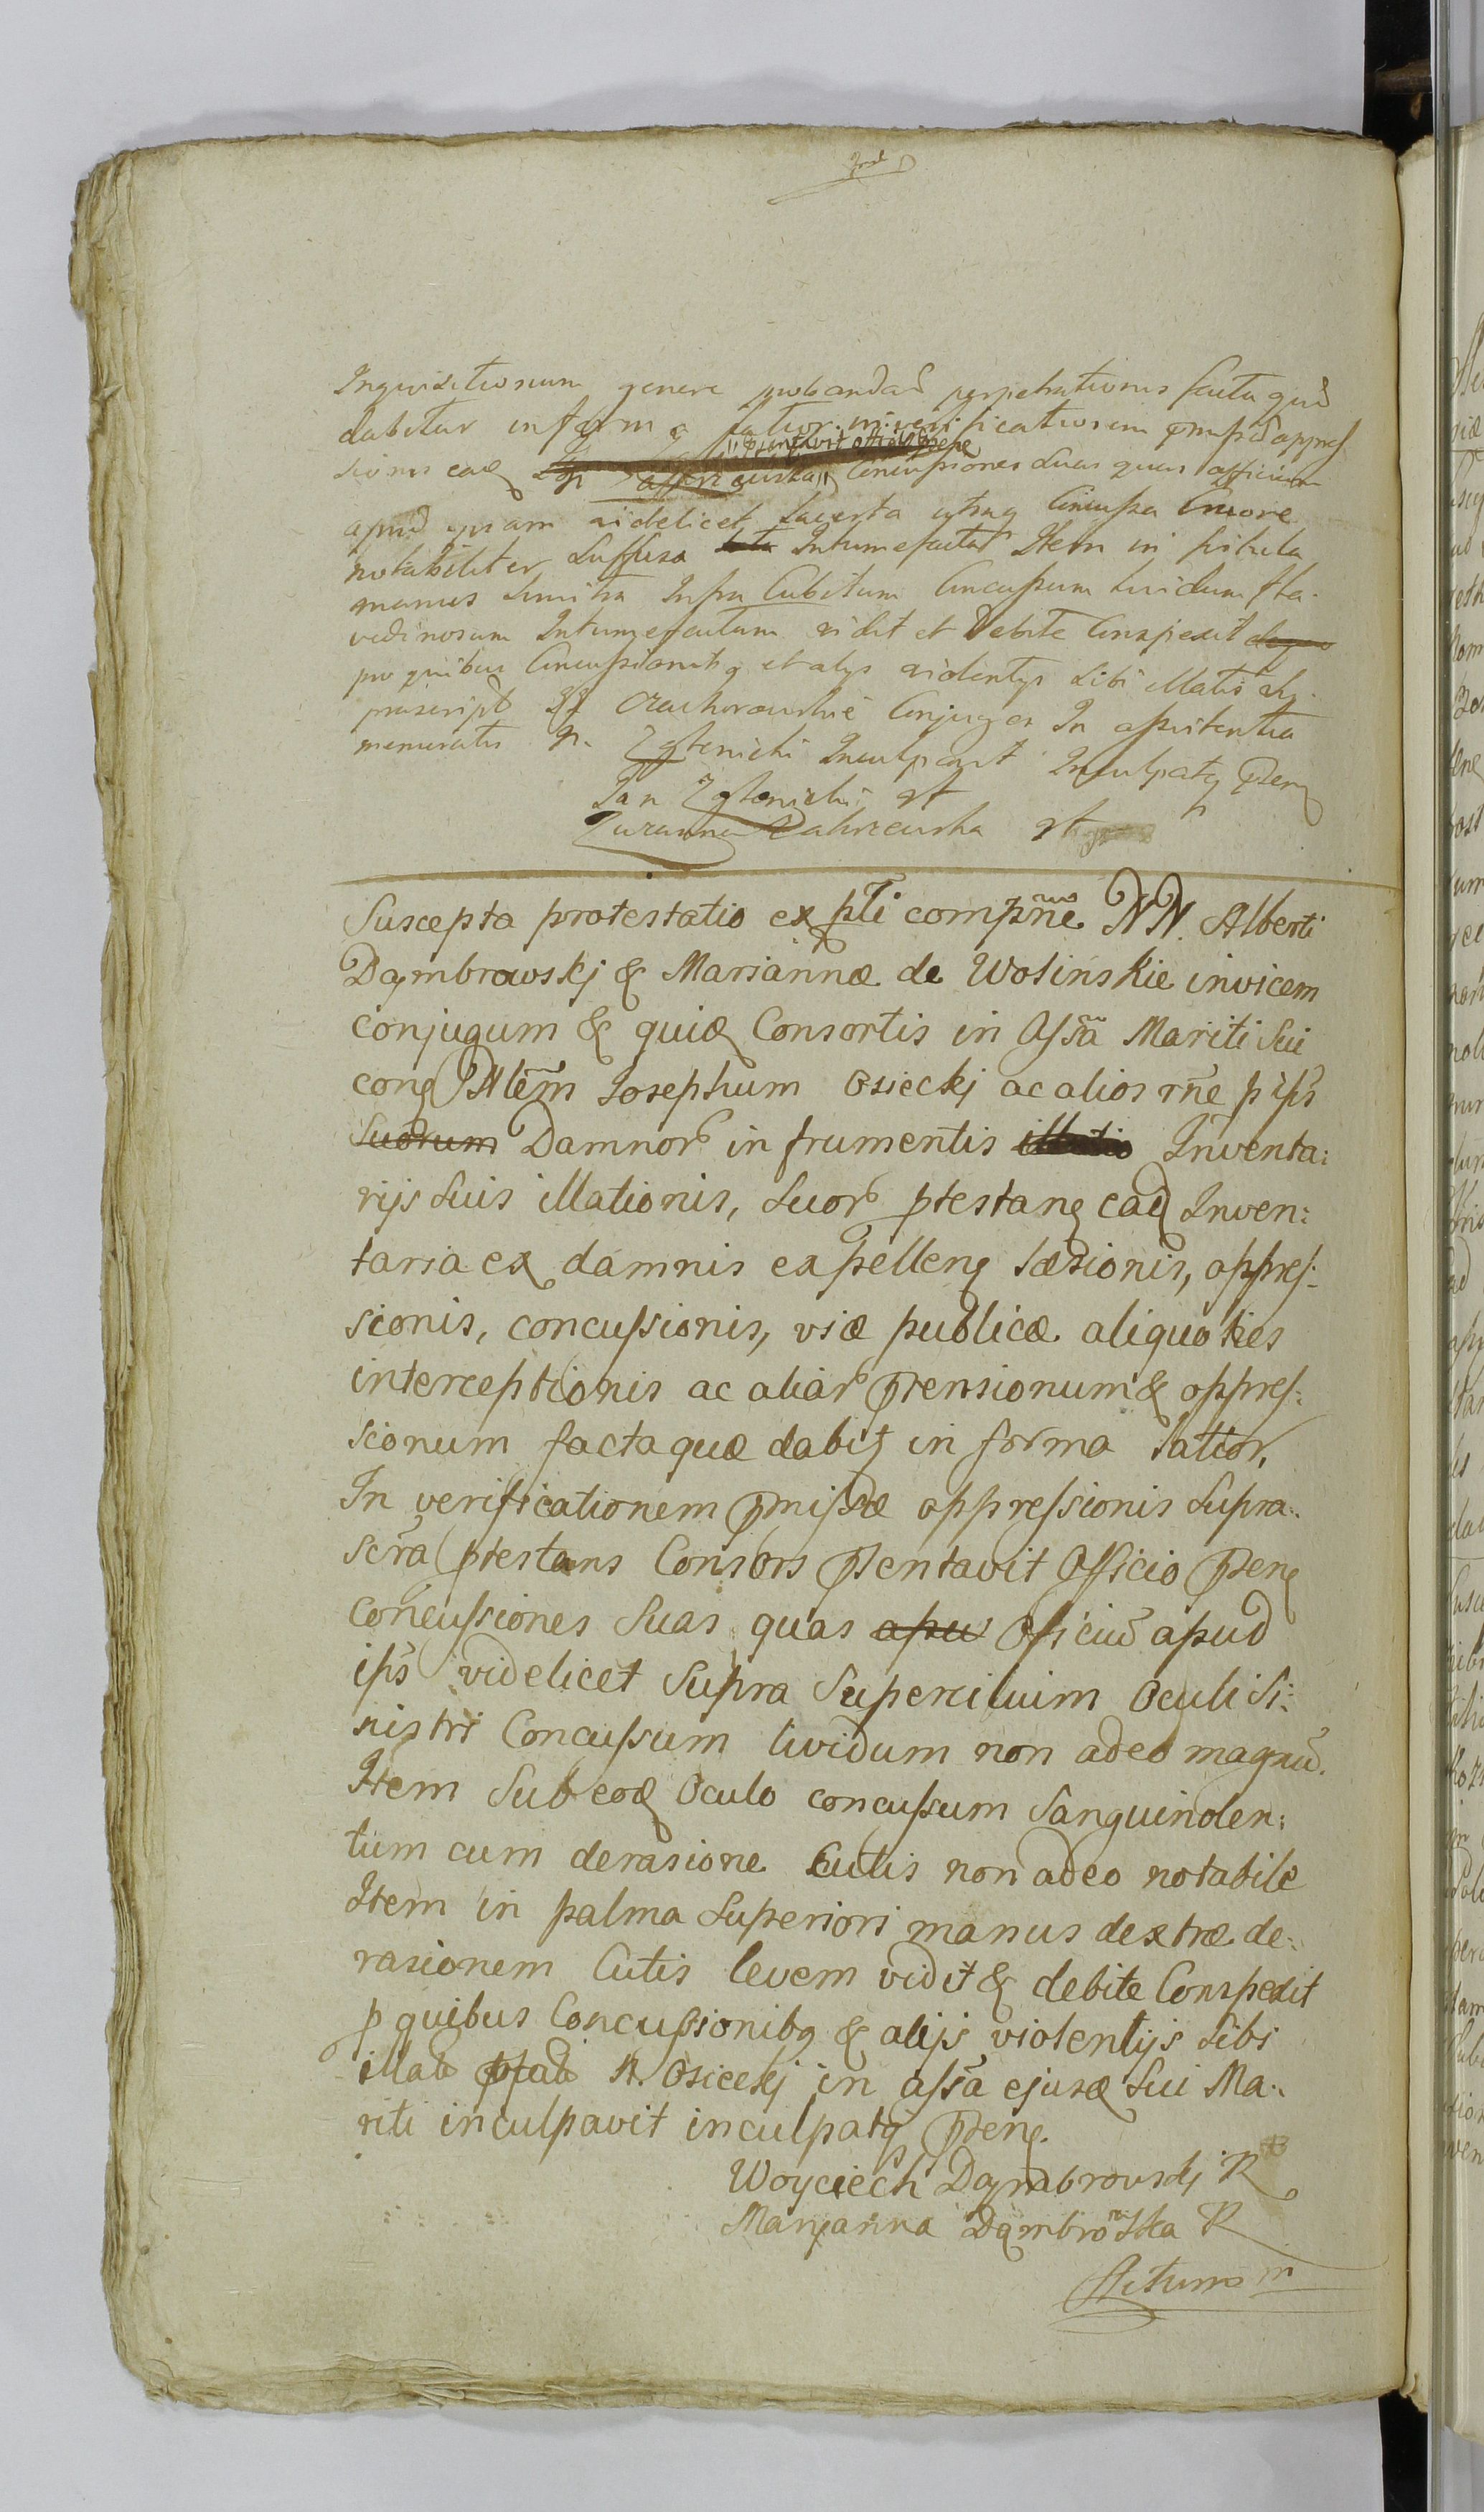 Inquisitionum genere probandas perpetrationis facta quæ
dabitur in forma latior. in verificationem præmissæ oppres
sionis eadem
"præsentavit officio præsente
Concussiones suas quas officium
apud ipsam videlicet lacerta utraq Concussa Cruore
notabiliter suffusa Intumefacta Item in
manus sinistra Infra Cubitum Concussum lividum fla-
vedinosum Intumefactum vidit et debite Conspexit
pro quibus Concussionibq et alys violentys sibi illatis
præscript Conjuges In assistentia
memorati N. Inculpavit Inculpatq
Jan
Zuzanna Zakrzewska
Suscepta protestatio ex pti compñe NN. Alberti
Dąmbrowskj & Mariannæ de Wolinskie invicem
conjugum & quid Consortis in Assã Mariti sui
cong Josephum Osieckj ac alios rñe
suorum Damnor in frumentis illatio Inventa:
rijs suis illationis, suor ptestang ead Inven:
taria ex damnis expelleng læsionis, oppres:
sionis, concussionis, viæ publicæ aliquoties
interceptionis ac aliar ptensionum & oppres:
sionum facta quæ dabit in forma latior,
In verificationem pmissæ oppressionis supra:
scra ptestans Consors psentavit Officio pseng
concussiones suas quas apu Officiũ apud
ips videlicet supra supercilium Oculi si:
nistri Concussum lividum non adeo magnũ.
Item sub eod Oculo concussum sanguinolen:
tum cum derasione Cutis non adeo notabile
Item in palma superiori manus dextræ de:
rasionem Cutis levem vidit & debite Conspexit
p quibus Concussionibq & alijs violentijs sibi
illat N. Osieckj in assã ejusd sui Ma:
riti inculpavit inculpatq pseng.
Woyciech Dąmbrovskj R
Maryanna Dąmbrowska R